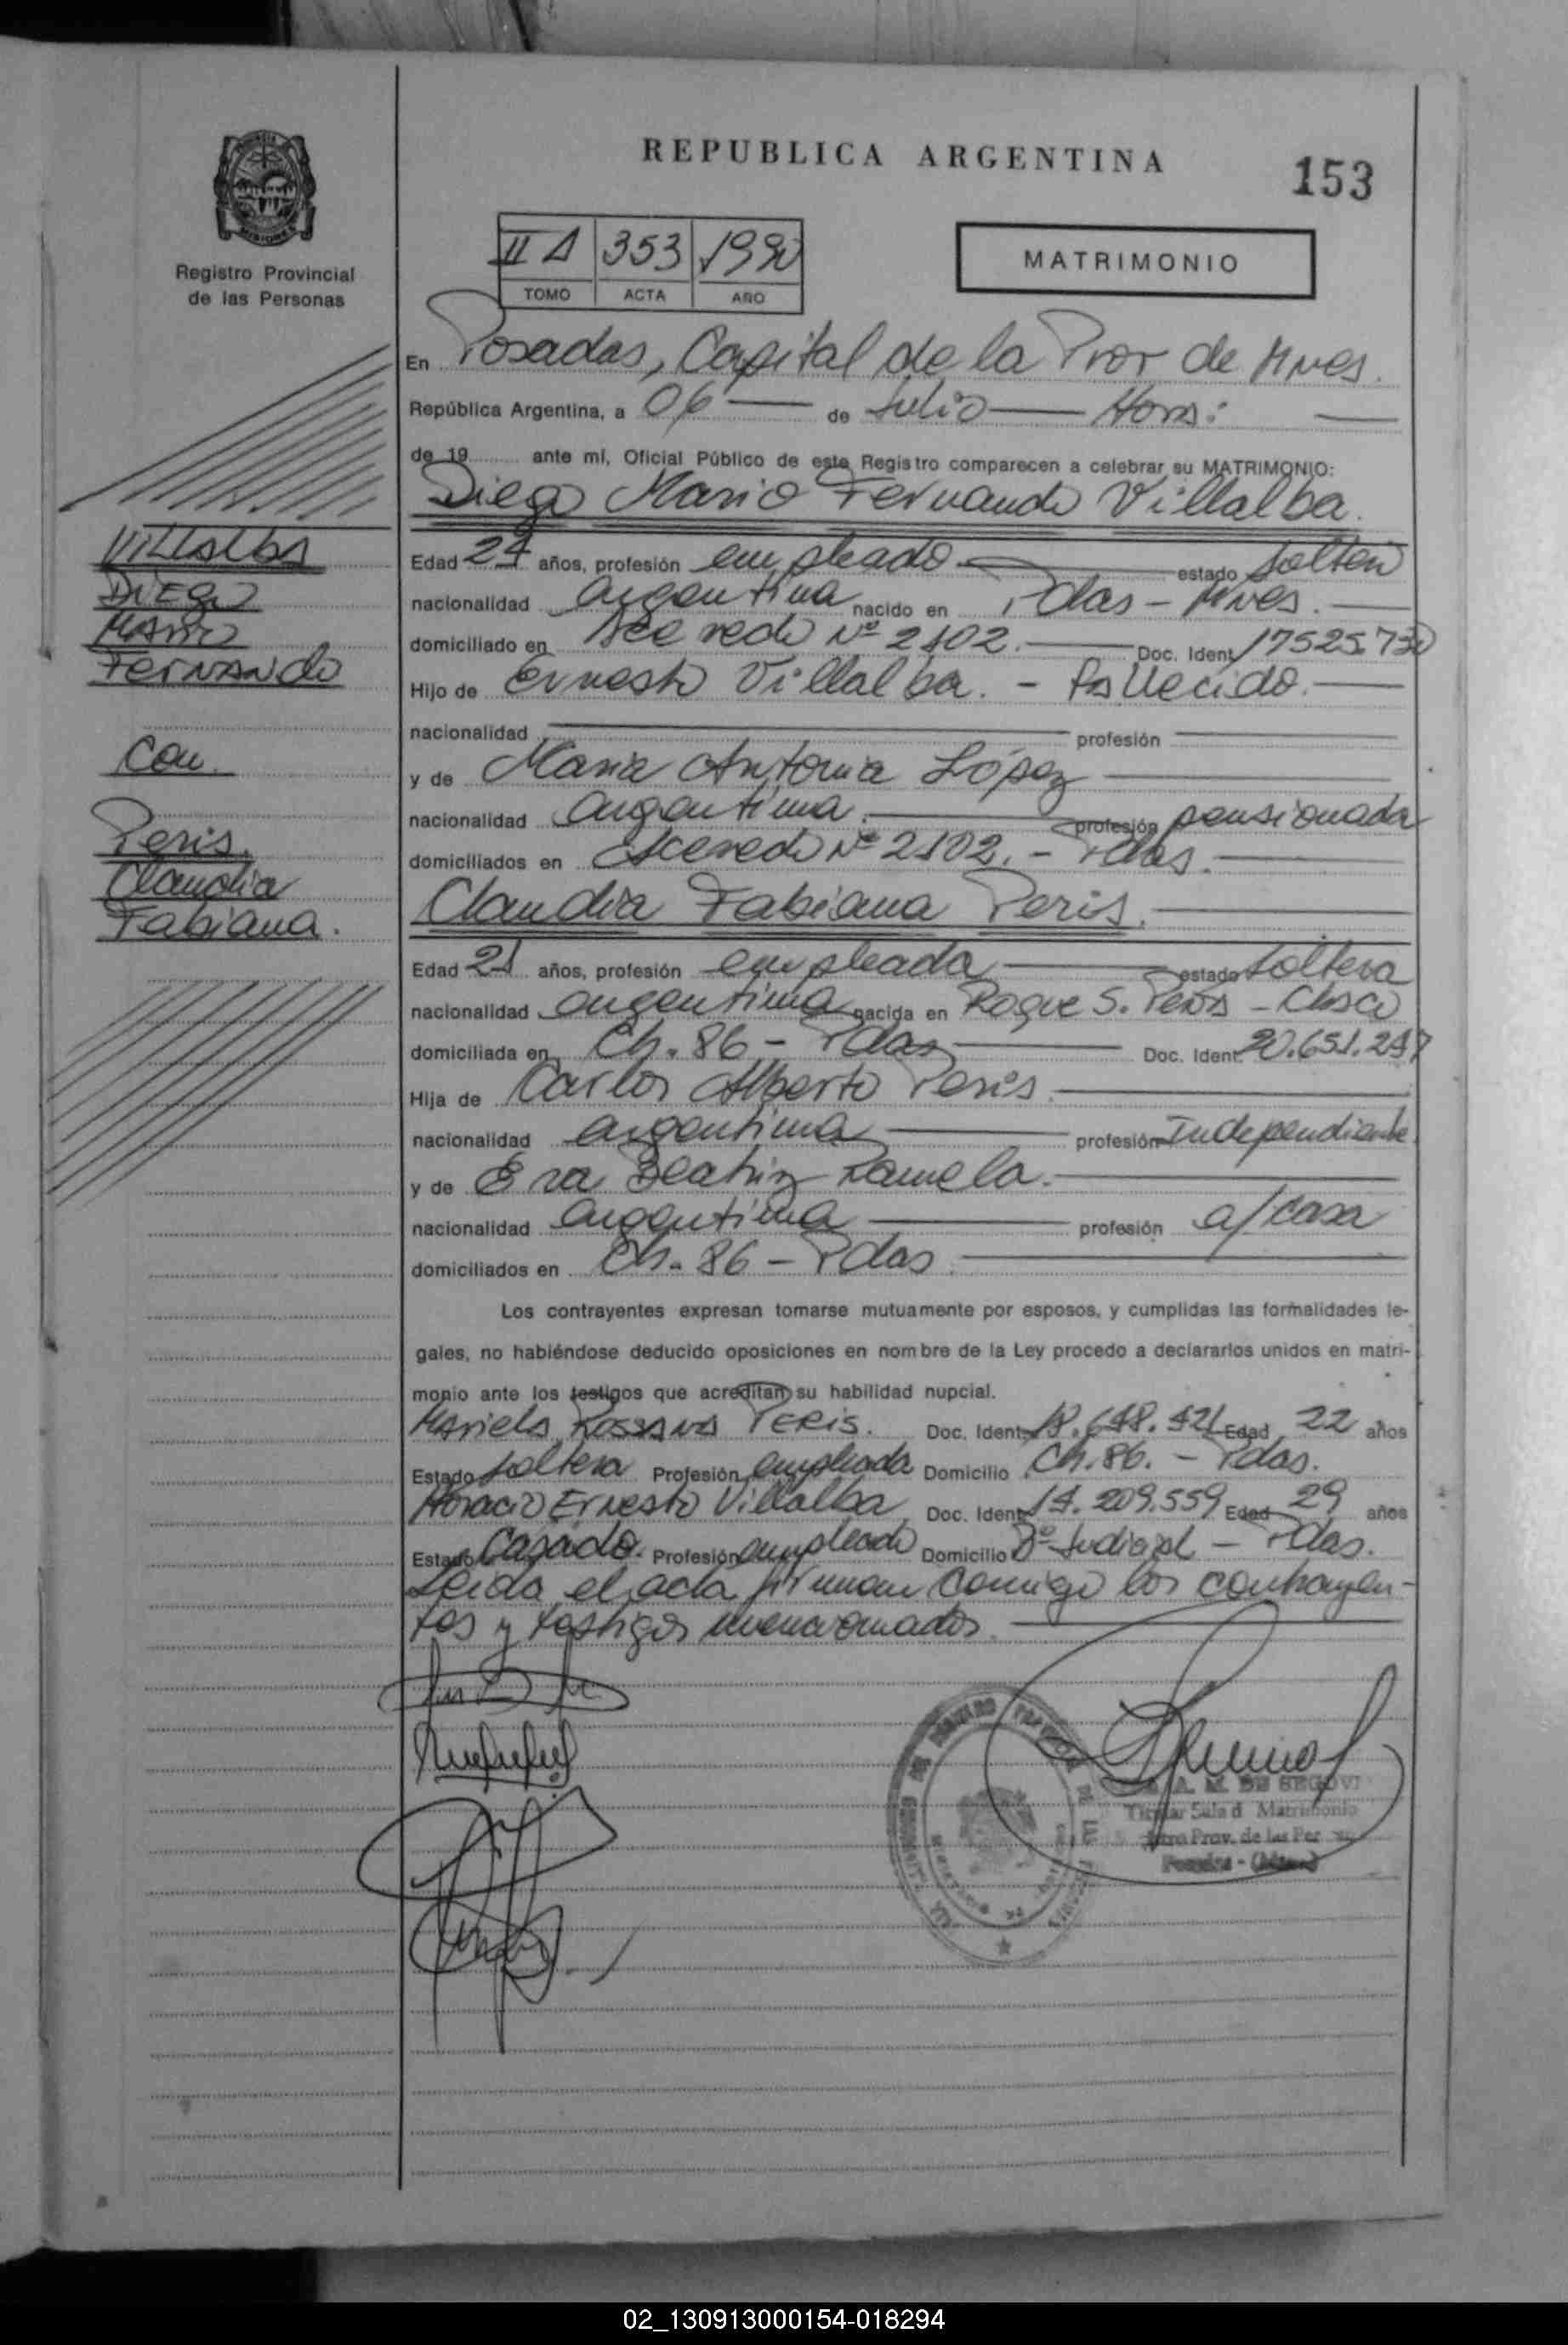 REPUBLICA ARGENTINA
153
Registro Provincial
de las Personas
353 1990
TOMO ACTA AÑO
MATRIMONIO
En Posadas, Capital de la Prov de Mnes.
República Argentina, a 06 de Julio Hora:
de 19 ante mí, Oficial Público de este Registro comparecen a celebrar su MATRIMONIO:
Diego Mario Fernando Villalba.
Villalba
DIEGO
MARIO
FERNANDO
Con
Peris.
Claudia
Fabiana.
Edad 24 años, profesión empleado estado soltero
nacionalidad argentina nacido en Pdas - Mnes.
domiciliado en Acevedo Nº 2102. Doc. Ident. 17525.730
Hijo de Ernesto Villalba. - Fallecido.
nacionalidad profesión
y de Maria Antonia López
nacionalidad argentina. profesión pensionada
domiciliados en Acevedo Nº 2102. - Pdas.
Claudia Fabiana Peris.
Edad 21 años, profesión empleada estado soltera
nacionalidad argentina nacida en Roque S. Peña - Chaco
domiciliada en Ch. 86 - Pdas Doc. Ident. 20.651.247
Hija de Carlos Alberto Peris.
nacionalidad argentina profesión Independiente
y de Eva Beatriz Ramela.
nacionalidad argentina profesión a/casa
domiciliados en Ch. 86 - Pdas.
Los contrayentes expresan tomarse mutuamente por esposos, y cumplidas las formalidades le-
gales, no habiéndose deducido oposiciones en nombre de la Ley procedo a declararlos unidos en matri-
monio ante los testigos que acreditan su habilidad nupcial.
Mariela Rossana PERIS. Doc. Ident. 18.648.421 Edad 22 años
Estado soltera Profesión empleada Domicilio Ch. 86. - Pdas.
Horacio Ernesto Villalba Doc. Ident. 14.209.559 Edad 29 años
Estado Casado. Profesión empleado Domicilio Bº Judicial - Pdas.
Leida el acta firman conmigo los contrayen-
tes y testigos mencionados.
A. M. DE SEGOVI
Titular Sala d Matrimonio
Prov. de las Per
02_130913000154-018294